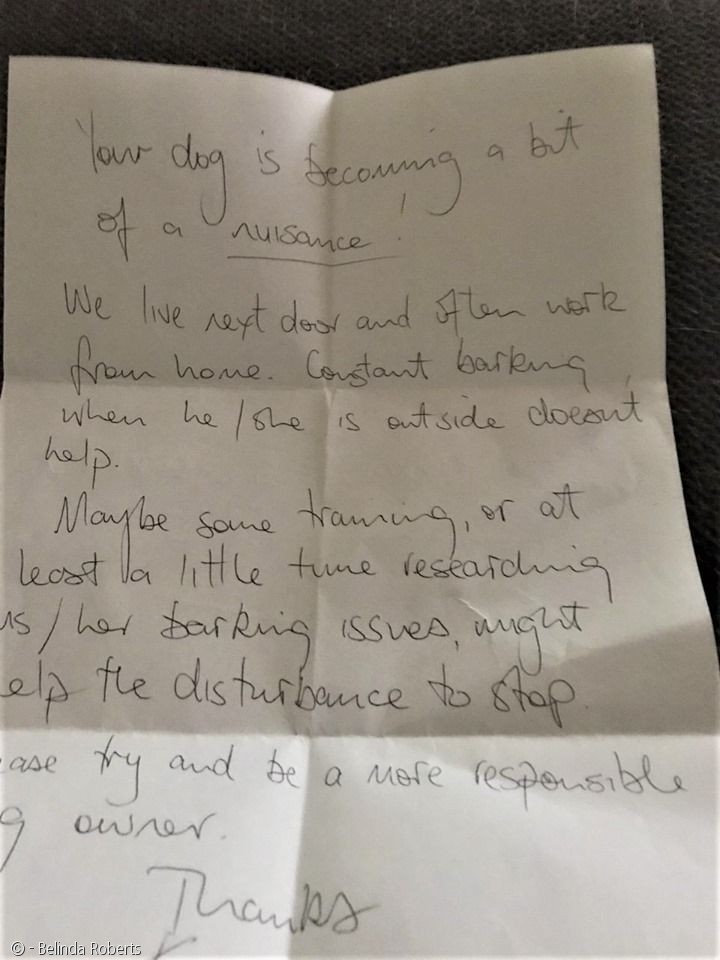 Your dog is becoming a bit
of a nuisance!
We live next door and often work
from home. Constant barking,
when he/she is outside doesnt
help.
Maybe some training, or at
least a little time researching
is/her barking issues, might
elp the disturbance to stop.
ease try and be a more responsible
g owner.
Thanks
© - Belinda Roberts